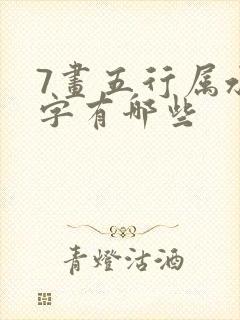 7畫五行属水
字有哪些
青燈沽酒